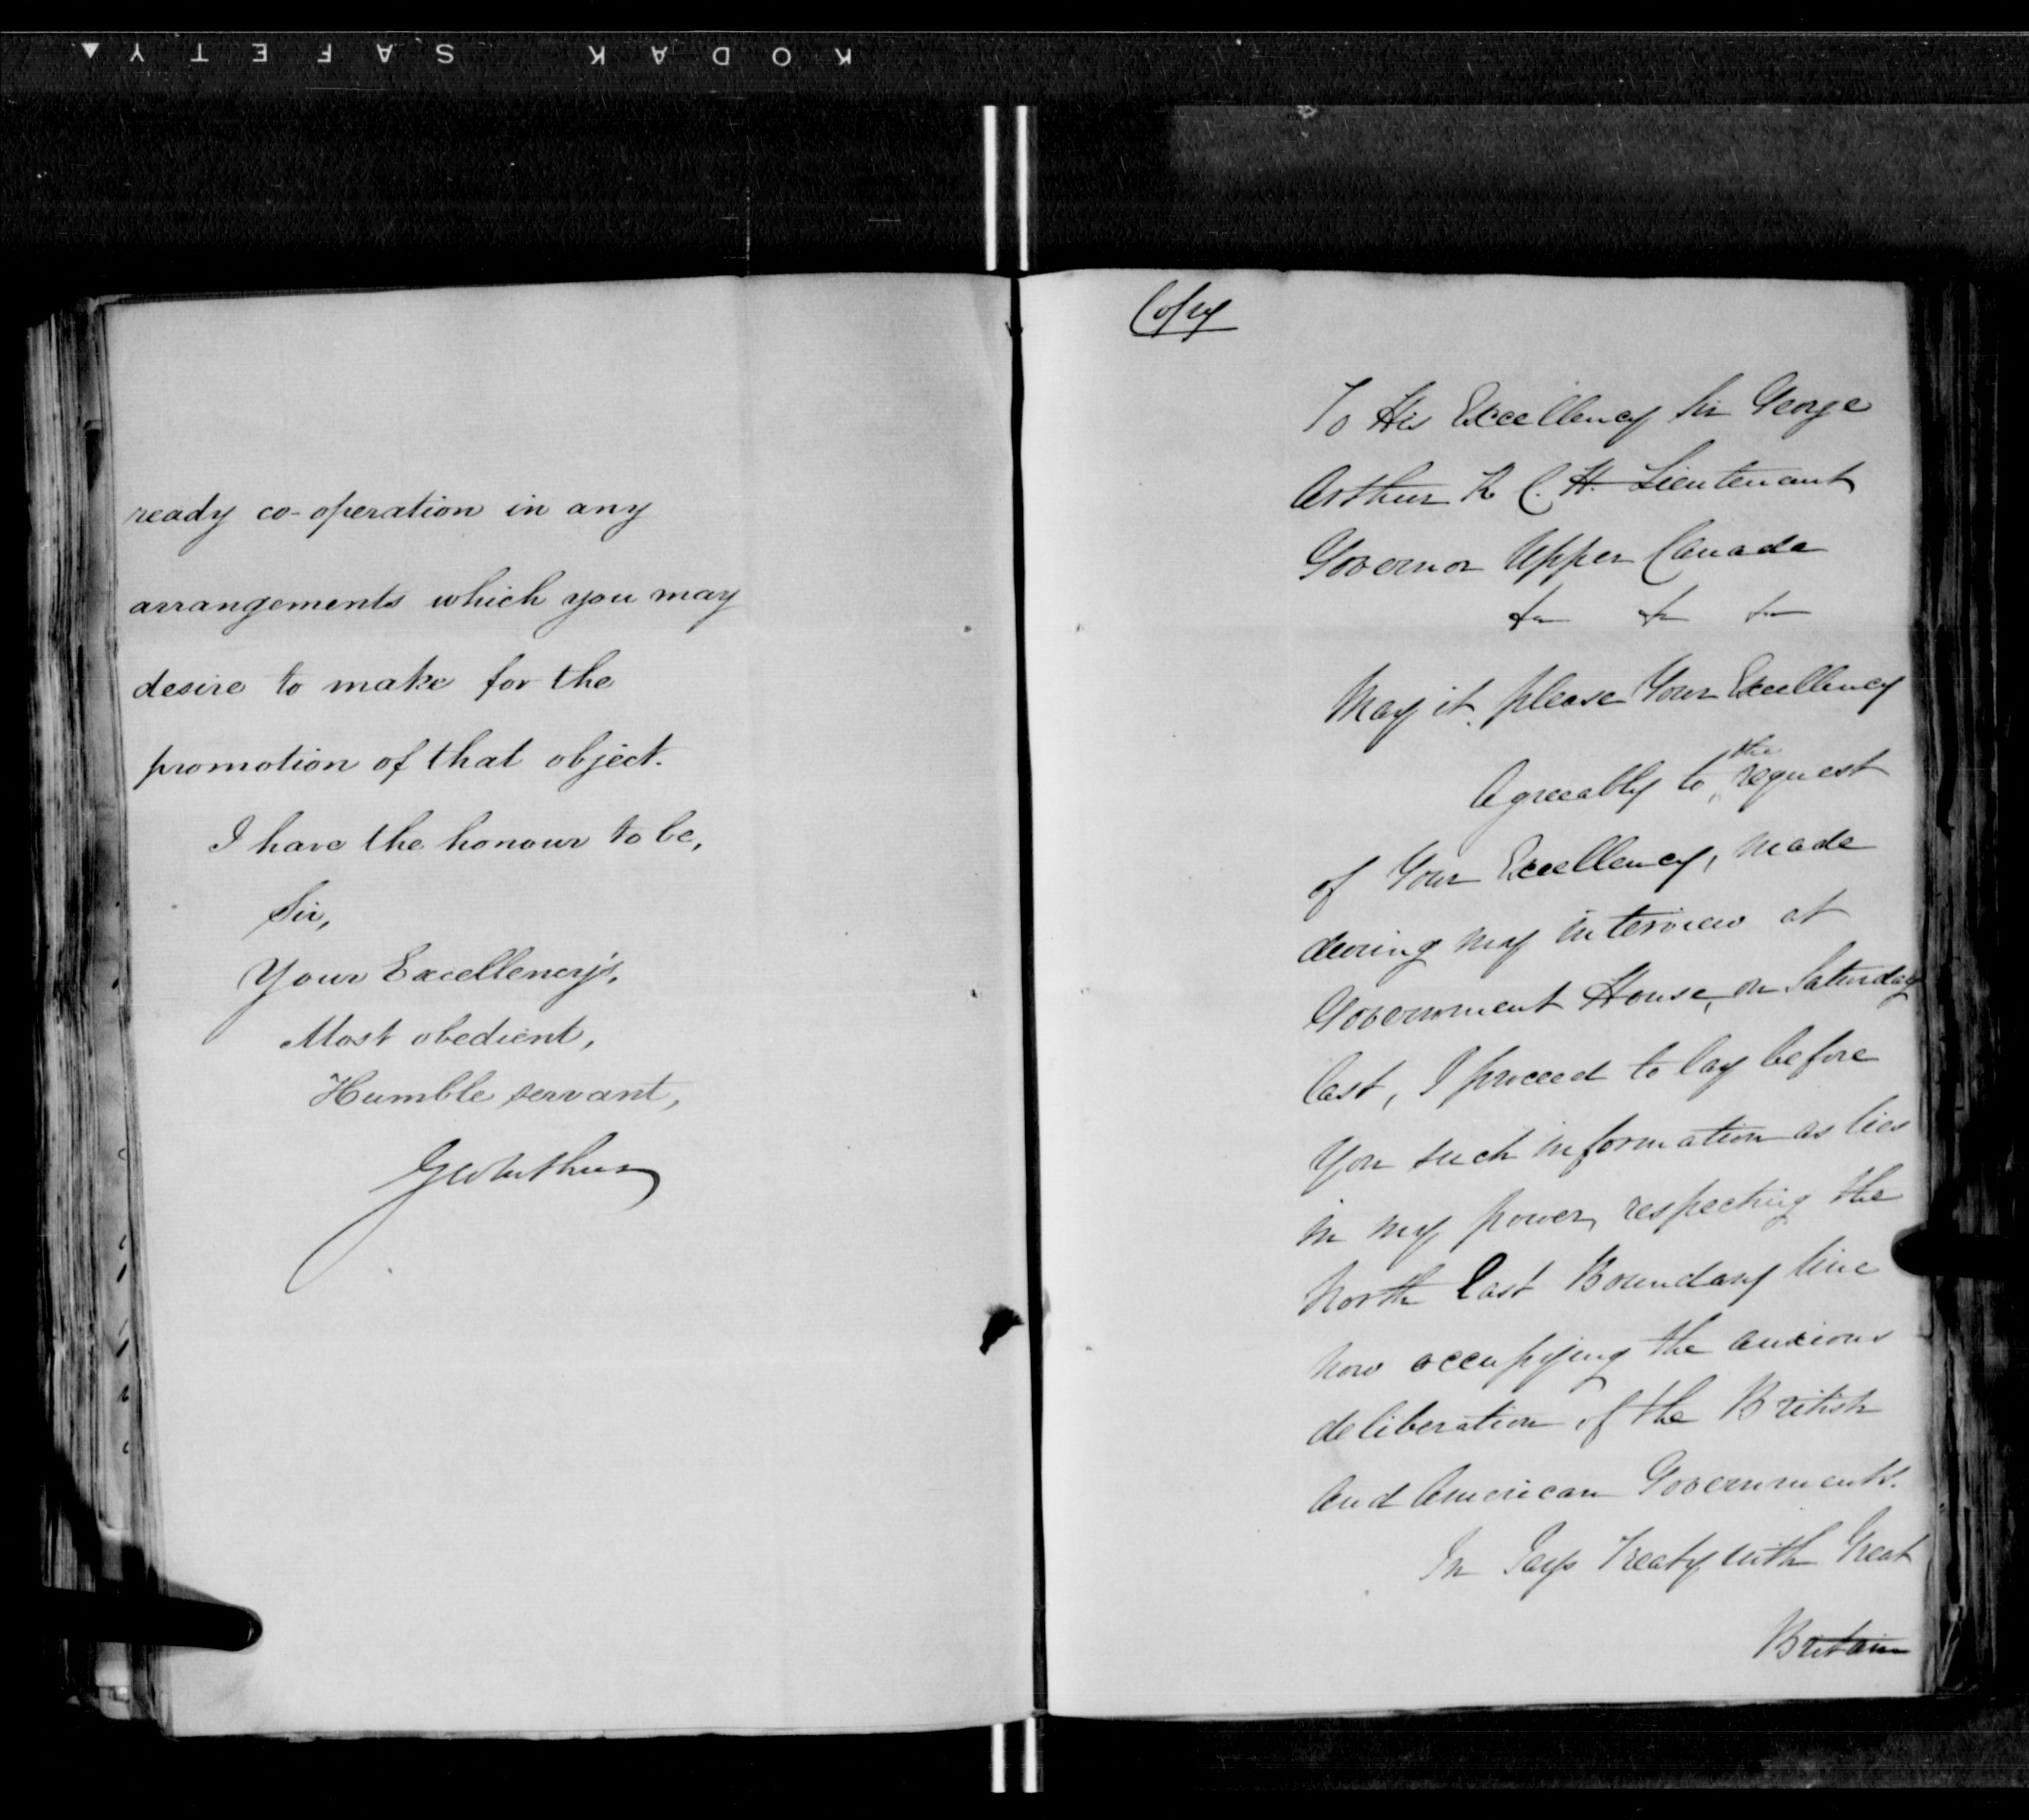 KODAK SAFETY
ready co-operation in any
arrangements which you may
desire to make for the
promotion of that object.
I have the honour to be,
Sir,
Your Excellency's,
Most obedient,
Humble servant,
Geo Arthur
Copy
To His Excellency Sir George
Arthur K. C. H. Lieutenant
Governor Upper Canada
&c &c &c
May it please Your Excellency
Agreeably to the request
of Your Excellency, made
during my interview at
Government House, on Saturday
last, I proceed to lay before
You such information as lies
in my power, respecting the
North East Boundary line
now occupying the anxious
deliberation of the British
and American Governments.
In Jays Treaty with Great
Britain